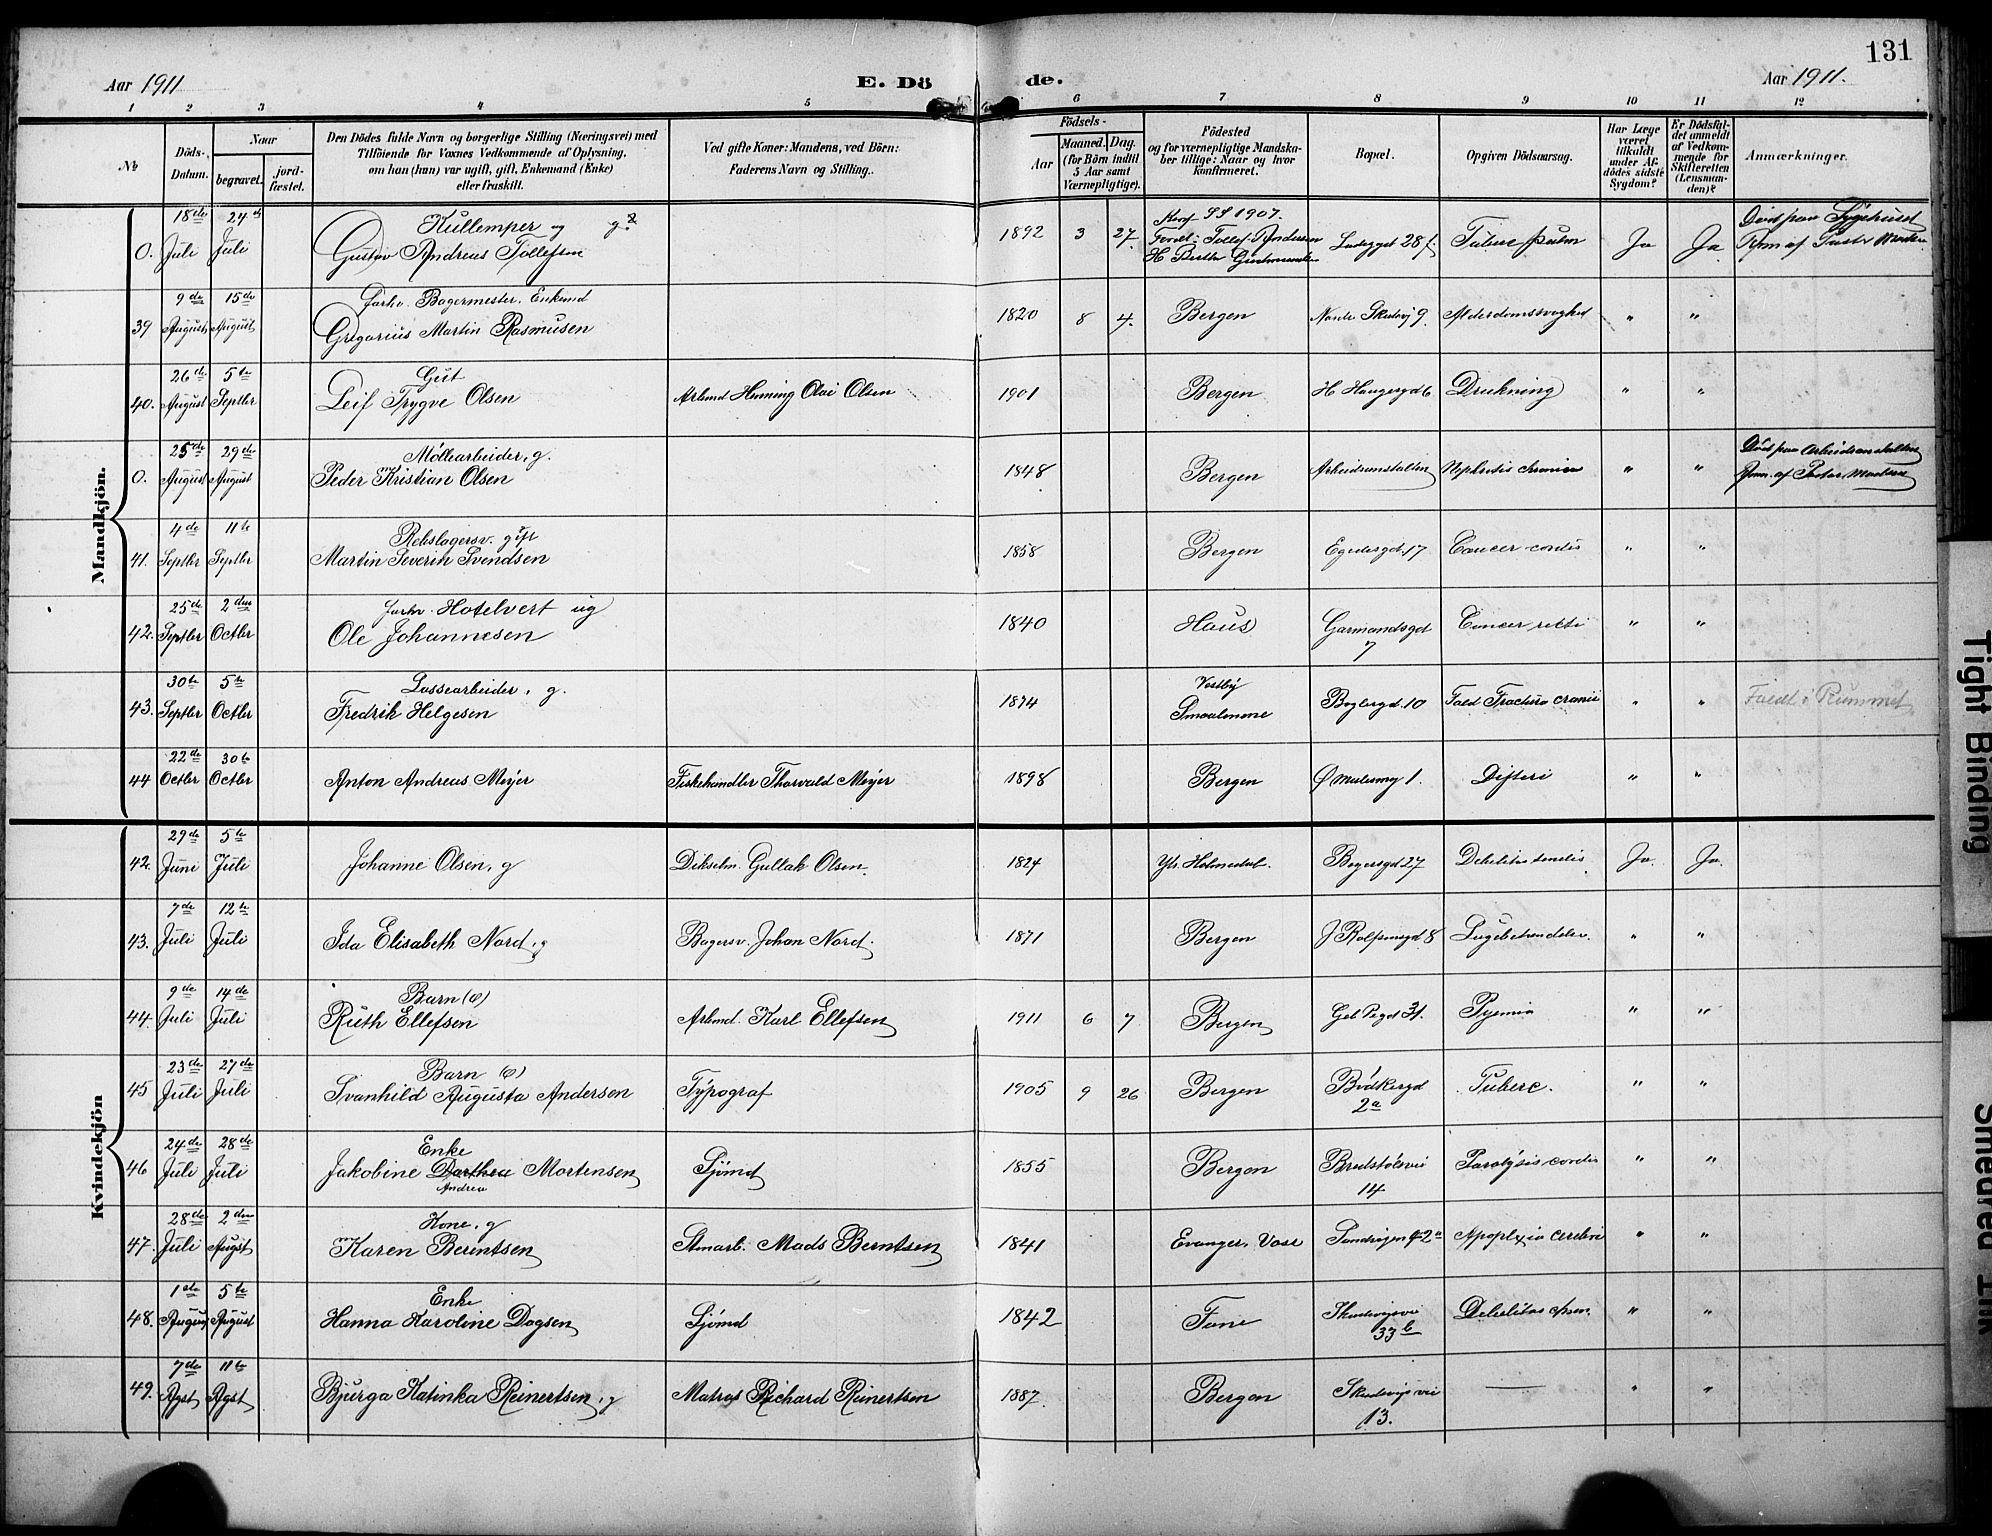 131
Aar 1911
E. Dö
de.
Aar 1911.
1 2 3 4 5 6 7 8 9 10 11 12
No
Döds-Datum.
Naar
begravet.
jord-fæstet.
Den Dödes fulde Navn og borgerlige Stilling (Næringsvei) med
Tilföiende for Voxnes Vedkommende af Oplysning,
om han (hun) var ugift, gift, Enkemand (Enke)
eller fraskilt.
Ved gifte Koner: Mandens, ved Börn:
Faderens Navn og Stilling.
Födsels-
Aar
Maaned. Dag.
(for Börn indtil
5 Aar samt
Værnepligtige).
Födested
og for værnepligtige Mandska-
ber tillige: Naar og hvor
konfirmeret.
Bopæl.
Opgiven Dödsaarsag.
Har Læge
været
tilkaldt
under Af-
dödes sidste
Sygdom?
Er Dödsfal-
det anmeldt
af Vedkom-
mende for
Skifteretten
(Lensman-
den)?
Anmærkninger.
Mandkjön.
0. 18de Juli 24de Juli Kullemper ug g?
Gustav Andreas Tollefsen 1892 3 27 Konf SS 1907.
Foræl: Tollef Andersen
Ladegdt 28 f. Tuberc pulm Ja Ja Död paa Sygehuset
39 9de August 15de August Forhv. Bagermester. Enkemd
Gregorius Martin Rasmusen 1820 8 4. Bergen Nordr Skudevj 9. Alderdomssvaghed " "
40. 26de August 5te Septbr Gut
Leif Trygve Olsen Arbmd Henning Olai Olsen 1901 Bergen H Haugesgd 6 Drukning " "
0. 25de August 29de August Möllearbeider, g.
Peder Kristian Olsen 1848 Bergen Arbeidsanstalten Nephritis chronica " " Död paa Arbeidsanstalten
41. 4de Septbr 11te Septbr Rebslagersv. gift
Martin Severin Svendsen 1858 Bergen Egedesgd. 17 Cancer cordis " "
42. 25de Septbr 2den Octbr forhv. Hotelvert ug
Ole Johannesen 1840 Haus Garmandsgd
7 Cancer recti " "
43. 30te Septbr 5te Octbr Lossearbeider, g.
Fredrik Helgesen 1874 Vestby
Smaalenene Bøglergd. 10 Fald Fractura cranii " " Faldt i Rummet
44 22de Octbr 30te Octbr Anton Andreas Meyer Fiskehandler Thorvald Meyer 1898 Bergen Ø Mulesmg 1. Difteri " "
Kvindekjön
42. 29de Juni 5te Juli Johanne Olsen, g Dikselm. Gullak Olsen. 1824 Ytr. Holmedal. Bøgersgd 27 Debilitas senilis Ja. Ja.
43. 7de Juli 12te Juli Ida Elisabeth Nord, g Bagersv. Johan Nord. 1871 Bergen J Rolfsensgd 8 Lugebetændelse. " "
44. 9de Juli 14de Juli Barn (e)
Ruth Ellefsen Arbmd. Karl Ellefsen 1911 6 7 Bergen 31. Pyemia " "
45 23de Juli 27de Juli Barn (e)
Svanhild Augusta Andersen Typograf 1905 9 26 Bergen Bödkergd
2a Tuberc. " "
46 24de Juli 28de Juli Enke
Jakobine Dorthea Mortensen
Andrea Sjömd 1855 Bergen Bredstølsvei
14 Paralysis cordis " "
47. 28de Juli 2den Augst Kone, g
Karen Berentsen Stmarb. Mads Berntsen 1841 Evanger, Voss Sandvigen 42a Apoplexia cerebri " "
48. 1ste August 5te August Enke
Hanna Karoline Dagsen Sjömd 1842 Fane Skudevigsvei
33b Debilitas " "
49. 7de Agst 11te Agst Bjurga Katinka Reinertsen, g Matros Richard Reinertsen 1887. Bergen Skudevigsvei
13. — " "
Tight Binding
Smeared Ink